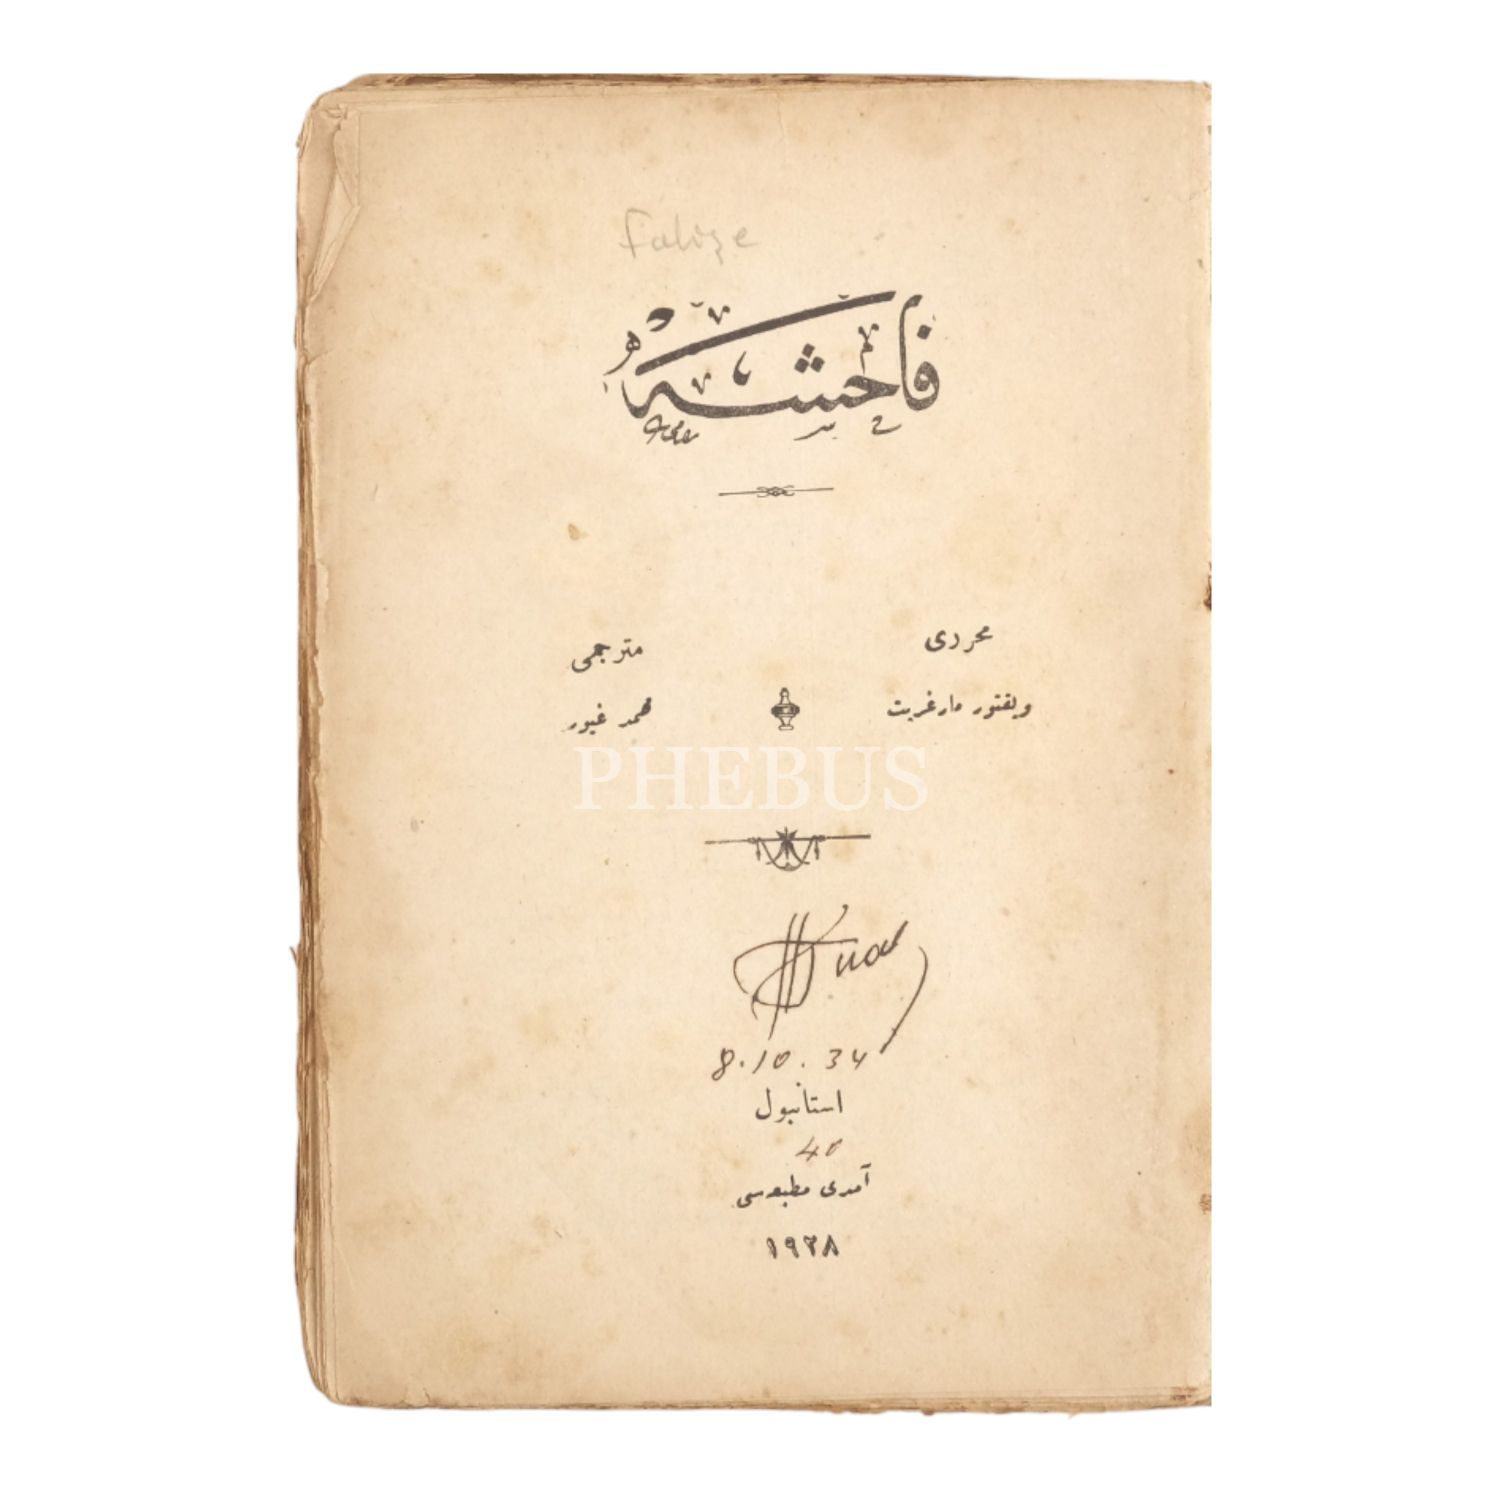 Fahişe
فاحشه
محرری
مترجمی
ویقتور مارغریت
محمد غیور
PHEBUS
8.10.34
استانبول
40
آمدی مطبعه‌سی
١٩٢٨